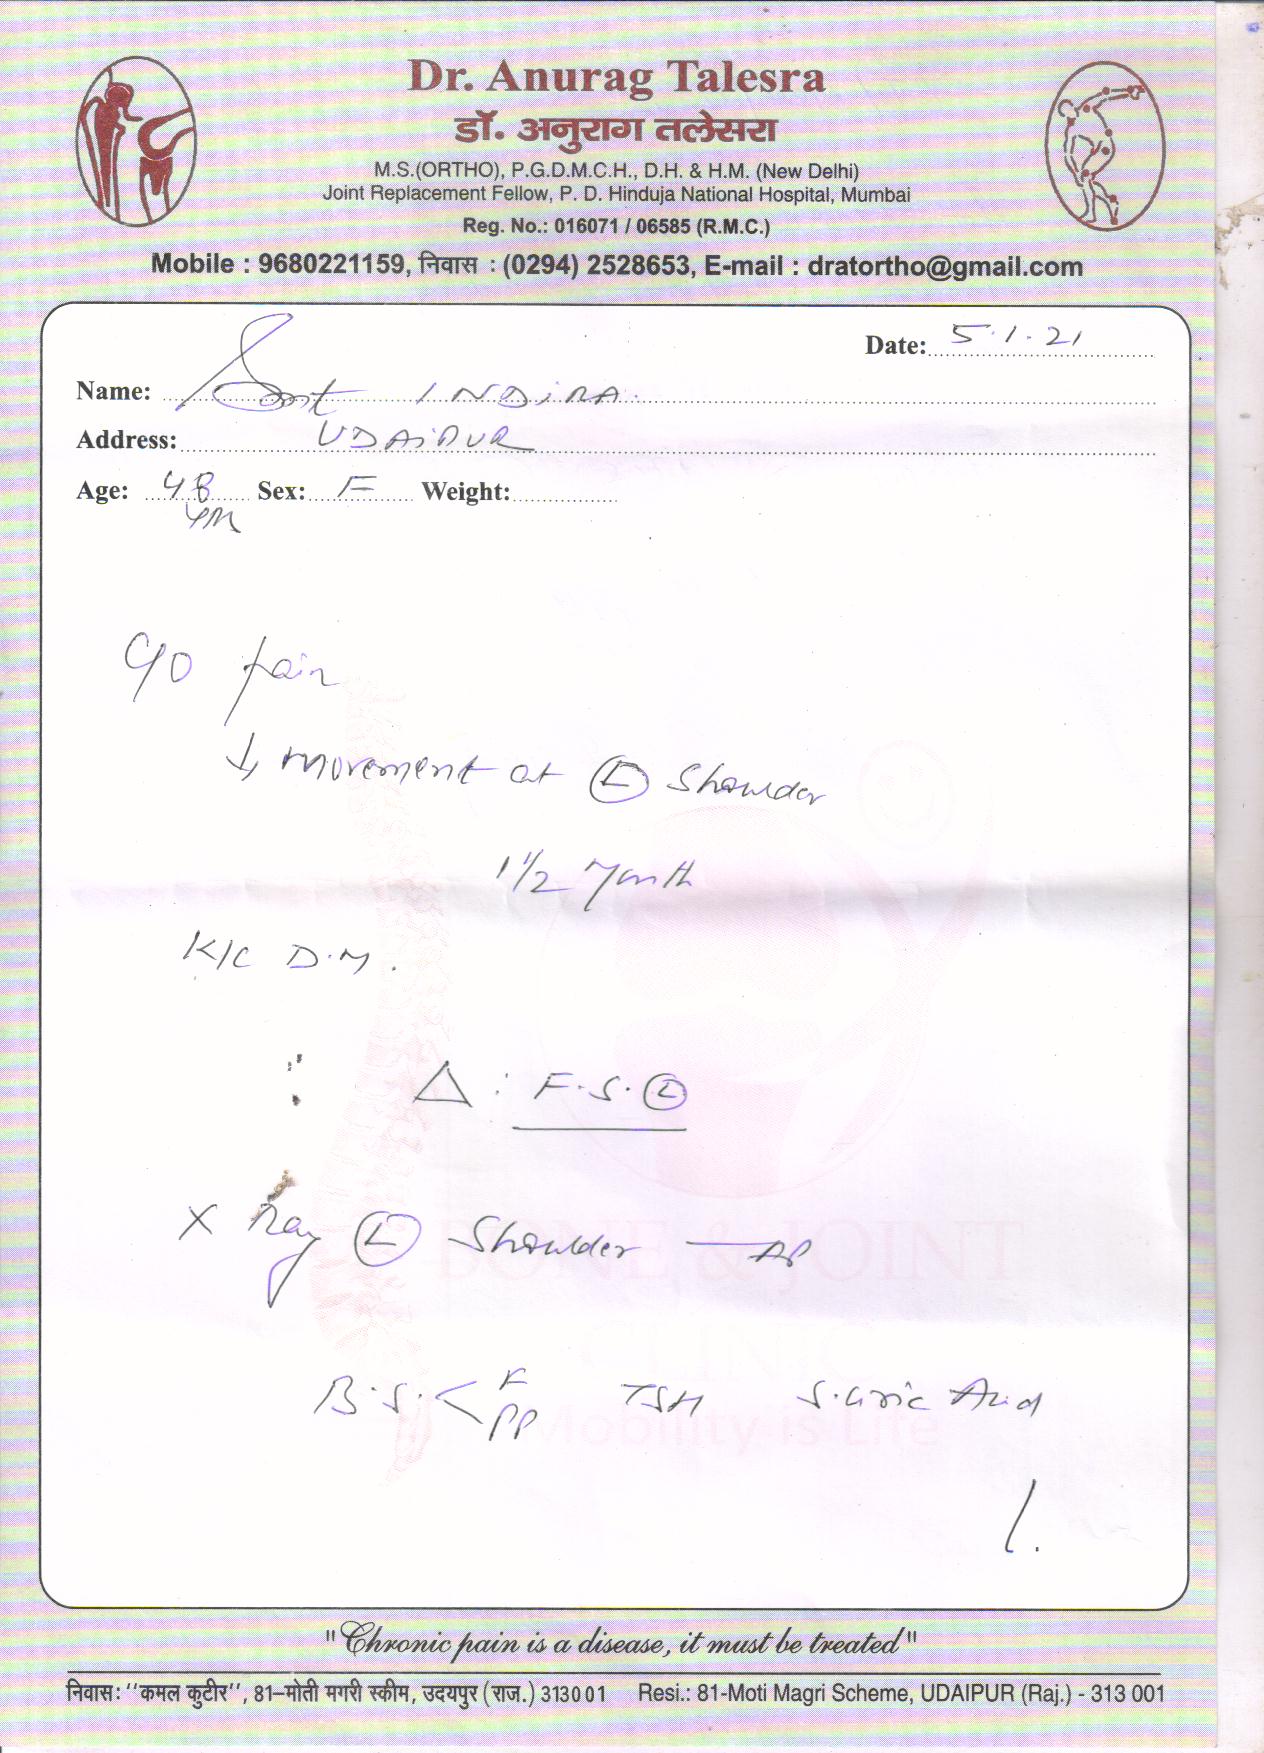 Dr. Anurag Talesra
डॉ. अनुराग तलेसरा
M.S.(ORTHO), P.G.D.M.C.H., D.H. & H.M. (New Delhi)
Joint Replacement Fellow, P. D. Hinduja National Hospital, Mumbai
Reg. No.: 016071 / 06585 (R.M.C.)
Mobile : 9680221159, निवास : (0294) 2528653, E-mail : dratortho@gmail.com
Date: 5.1.21
Name: Smt INDIRA
Address: UDAIPUR
Age: 48 Sex: F Weight:
C/O pain
↓ movement at Ⓛ Shoulder
1 1/2 Month
K/C D.M.
Δ : F.S. Ⓛ
X Ray Ⓛ Shoulder — AP
B.S. < F PP TSH S. Uric Acid
BONE & JOINT
CLINIC
Mobility is Life
"Chronic pain is a disease, it must be treated"
निवास: ''कमल कुटीर'', 81–मोती मगरी स्कीम, उदयपुर (राज.) 313001 Resi.: 81-Moti Magri Scheme, UDAIPUR (Raj.) - 313 001